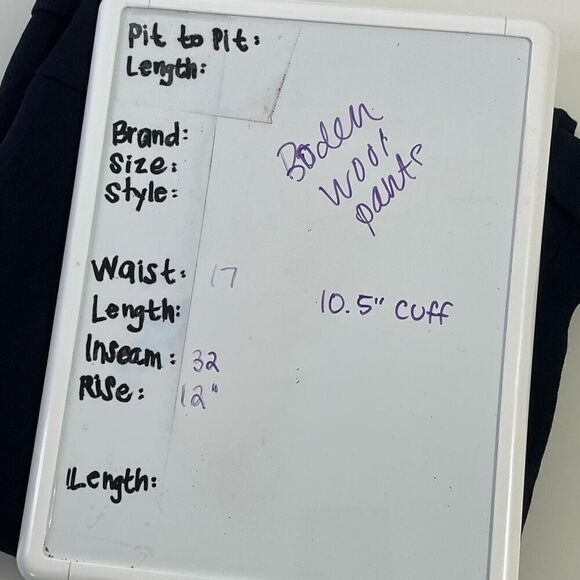 Pit to Pit:
Length:
Brand:
Size:
Style:
Boden
wool
pants
Waist: 17
Length:
10.5" cuff
Inseam: 32
Rise: 12"
Length: